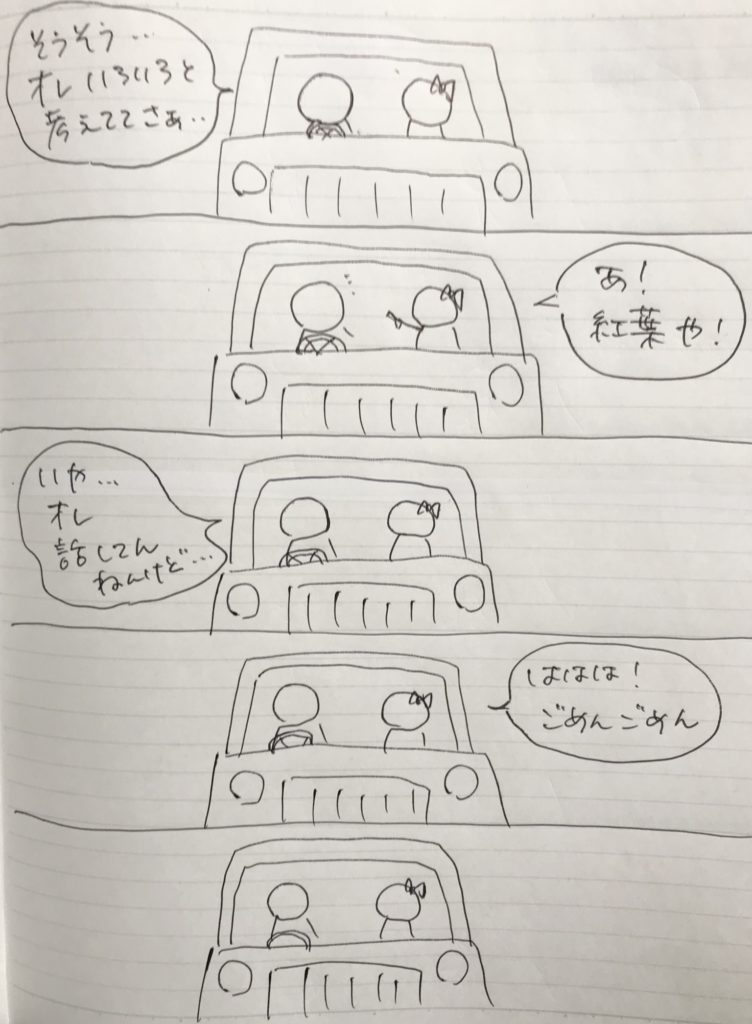 そうそう…
オレいろいろと
考えててさぁ‥
あ！
紅葉や！
いや…
オレ
話してん
ねんけど…
ははは！
ごめんごめん